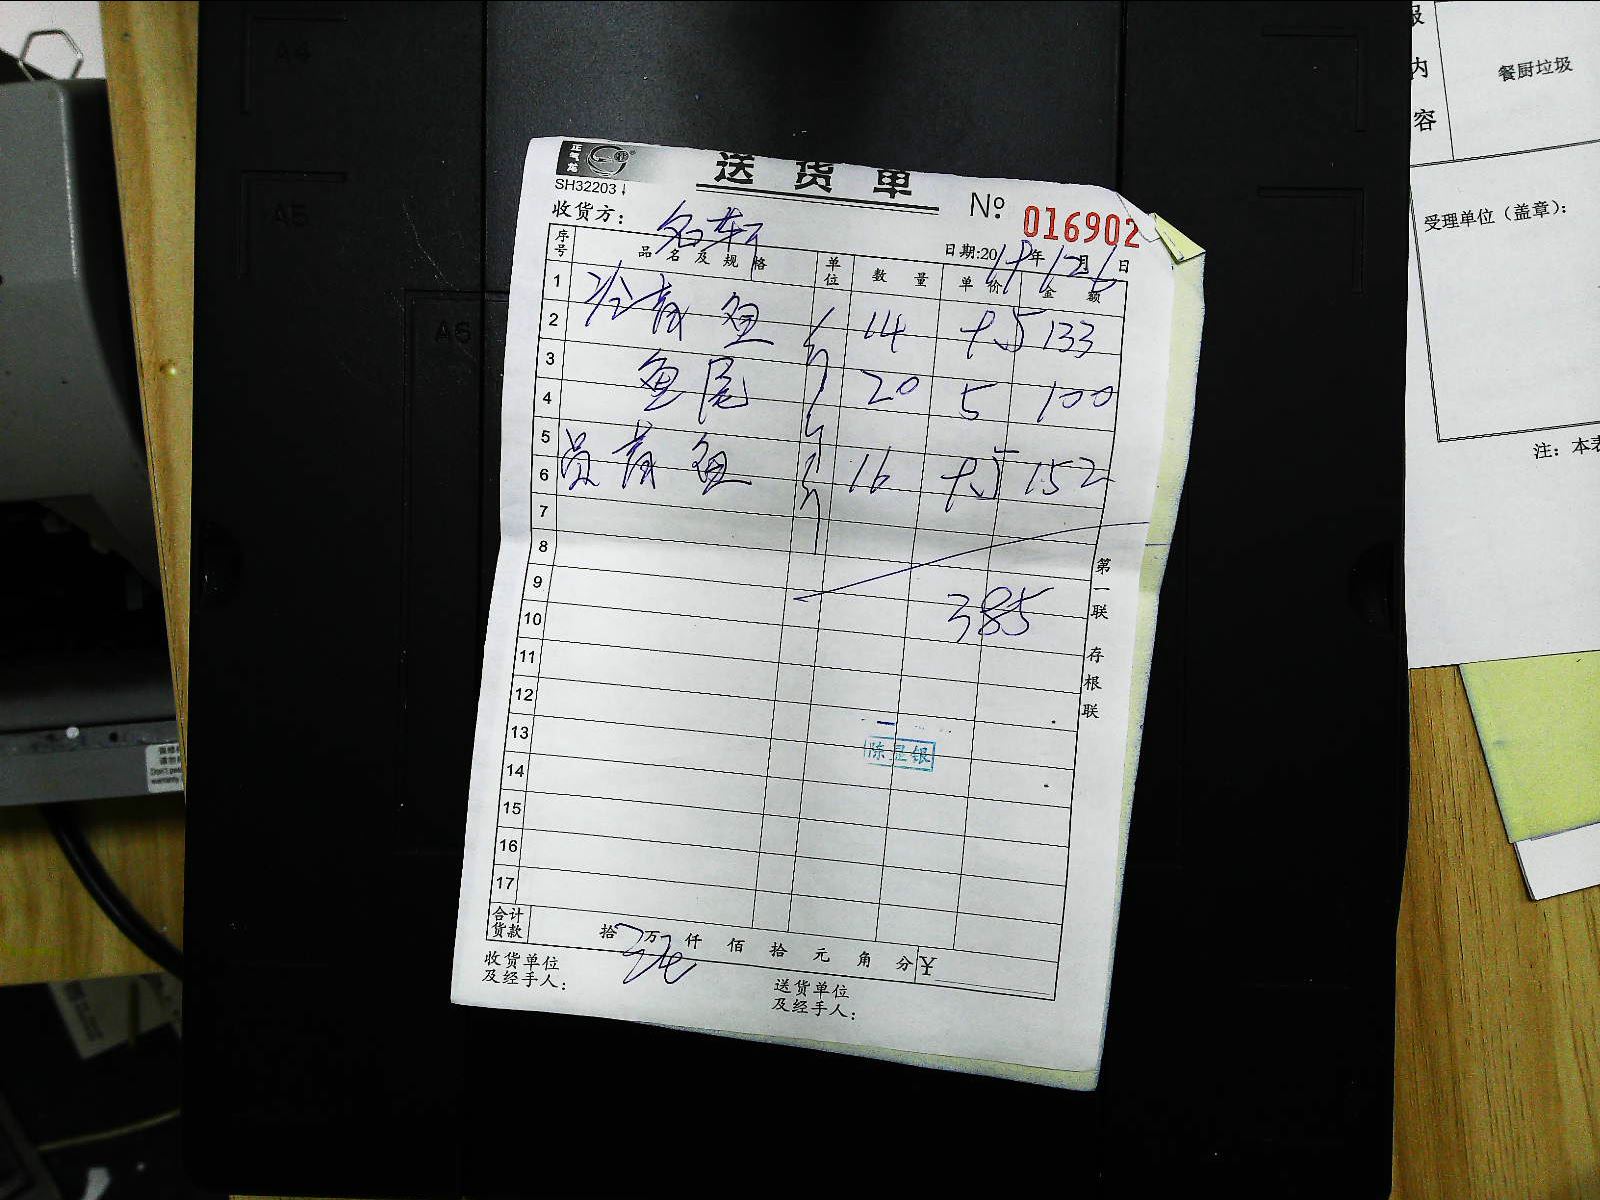 A4
A5
A6
正气龙
SH32203
送货单
№ 016902
收货方: 名轩
日期:20 年 月 日
序号 品名及规格 单位 数量 单价 金额
1
2 鱼 14 9.5 133
3
4 鱼尾 20 5 100
5
6 鱼 16 9.5 152
7
8
9
10 385
11
12
13
陈显银
14
15
16
17
合计货款 拾 万 仟 佰 拾 元 角 分 ¥
收货单位
及经手人:
送货单位
及经手人:
第一联 存根联
内容
餐厨垃圾
受理单位（盖章）：
注：本表